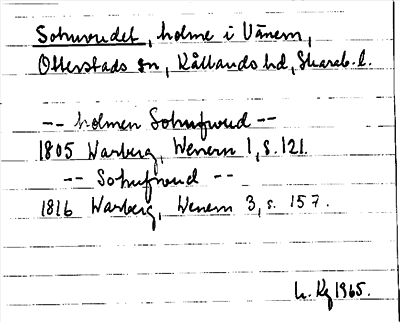 Sohuvudet, holme i Vänern,
Otterstads sn, Kållands hd, Skarab. l.
-- holmen Sohufwud --
1805 Warberg, Wenern 1, s. 121.
-- Sohufwud --
1816 Warberg, Wenern 3, s. 157.
1965.